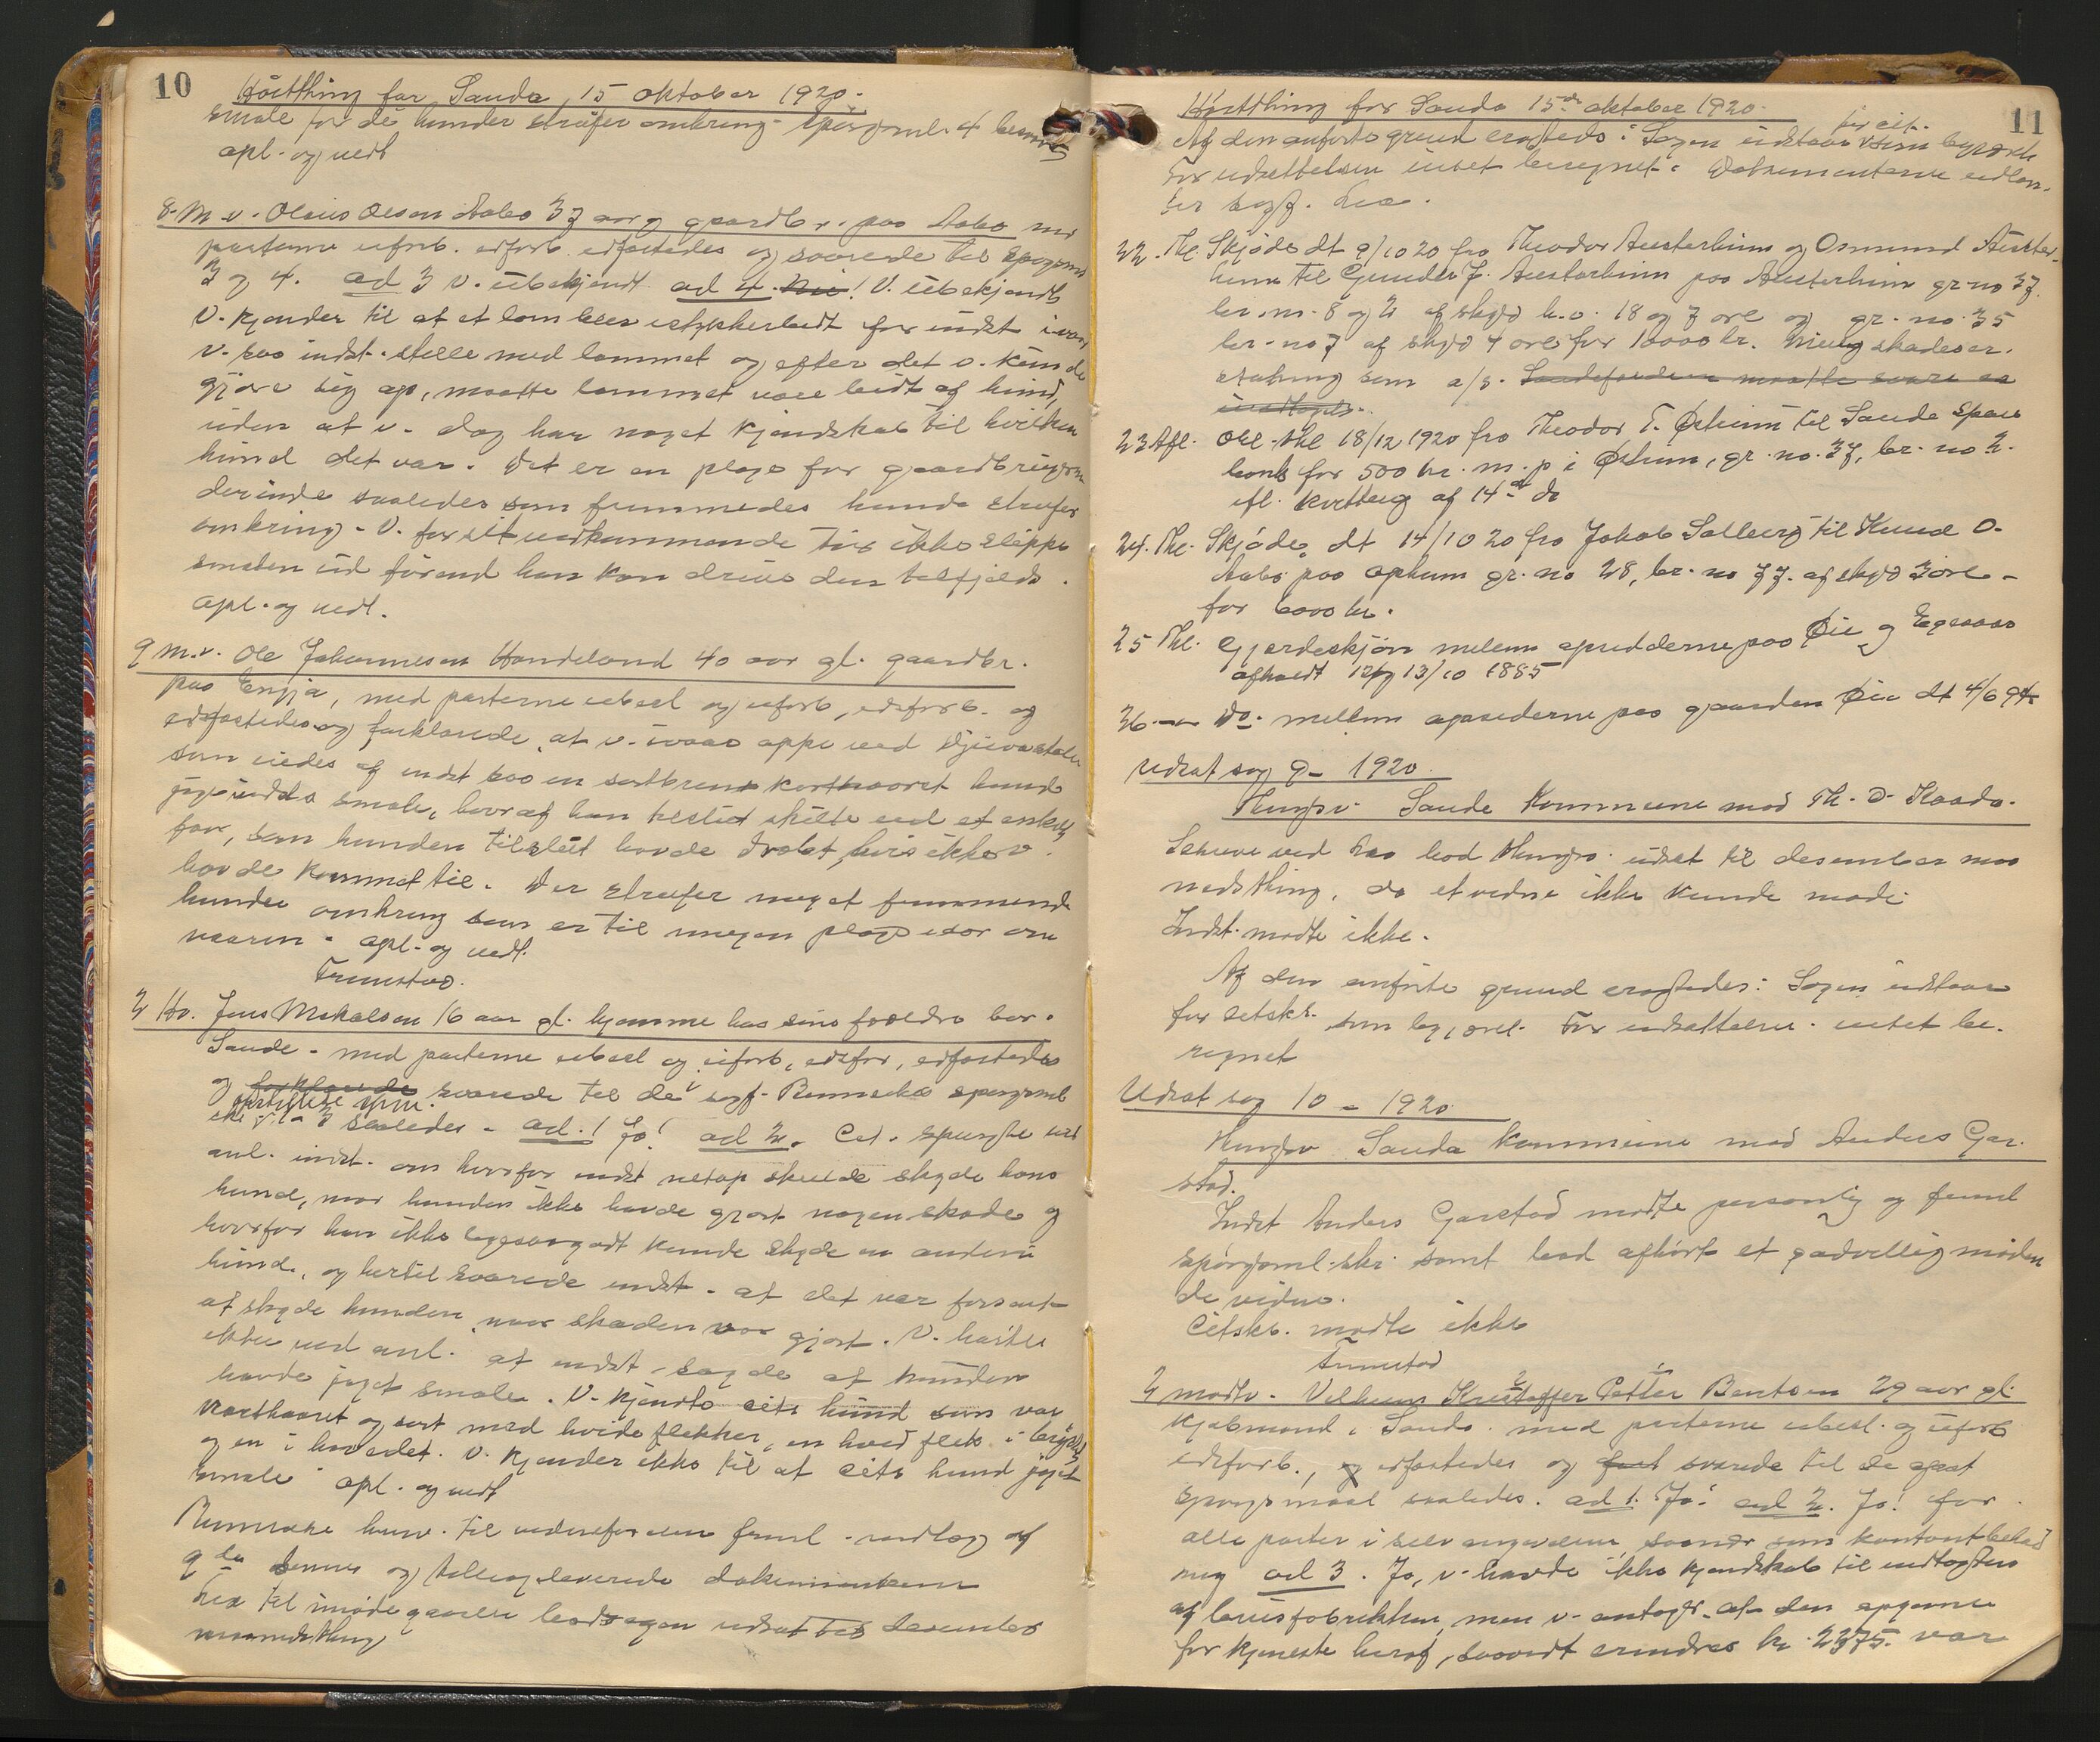 10
Høstthing for Sauda 15 oktober 1920.
smale for de hunder strøifer omkring. Spørgsml. 4 besvares
opl. og vedt
8. M. v. Olaus Olsen Aabø 37 aar g gaardbr. paa Aabø med
parterne uforb. edforb. edfæstedes og svarede til spørgsm
3 og 4. ad 3 V. ubekjendt ad 4. Nei! V. ubekjendt
V. kjender til at et lam blev istykkerbidt for indst i vaar,
v. saa indst. stelle med lammet og efter det v. kunde
gjøre sig op, maatte lammet være bidt af hund,
uden at v. dog har noget kjendskab til hvilken
hund det var. Det er en plage for gaardbrugerne
derinde saaledes som fremmedes hunde strøifer
omkring. V. for sit vedkommende tør ikke slippe
smalen ud førend han kan drive den tilfjelds.
opl. og vedt.
9 m. v. Ole Johannesen Handeland 40 aar gl. gaardbr.
paa Engja, med parterne ubesl og uforb, edsforb. og
edfæstedes og forklarede, at v. ivaar oppe ved
som eiedes af indst saa en sortbrun korthaaret hund
jage indsts smale, hvoraf han tilslut skilte ud et enkelt
faar, som hunden tilslut havde dræbt, hvis ikke v.
havde kommet til. Der strøifer meget fremmende
hunder omkring som er til megen plage især om
vaaren. opl. og vedt.
Fremstod.
2 Hv. Jens Mekalsen 16 aar gl. hjemme hos sine forældre bor.
Sauda. med parterne ubesl og uforb, edsfor, edfæstedes
og forklarede svarede til de sagf. Rennsekes spørgsml
skr. 1 - 3 saaledes. ad. 1 Ja! ad 2. Cit. spurgte ved
anl. indst. om hvorfor indst netop skulde skyde hans
hund, naar hunden ikke havde gjort nogen skade og
hvorfor han ikke ligesaagodt kunde skyde en anden
hund, og hertil svarede indst. at det var forsent
at skyde hunden naar skaden var gjort. V. hørte
ikke ved anl. at indst. sagde at hunden
havde jaget smale. V. kjendte cits hund som var
korthaaret og sort med hvide flekker, en hvid flek i brystet
og en i hovedet. V. kjender ikke til at cits hund jaget
smale opl. og vedt
Rennseke henv. til vidneførslen freml. indlæg af
9de dennes og tilbageleverede dokumenterne
Lea til imødegaaelse bad sagen udsat til desember
maanedsthing
11
Høstthing for Sauda 15de oktober 1920.
for cit.
Af den anførte grund eragtedes: Sagen udstaar som begjært
For udsættelsen intet beregnet. Dokumenterne udlaan-
tes sagf. Lea.
22. Thl. Skjøde dt 9/10 20 fra Theodor Austerheim og Osmund Auster-
heim til Gunder J. Austerheim paa Austerheim gr no 37
br. nr. 8 og 2 af skyld h. v. 18 og 7 øre og gr. no. 35
br. no 7 af skyld 4 øre for 10000 kr.
som a/s.
23 Afl. Obl. thl 18/12 1920 fra Theodor T. Østeim til Sauda Spare
bank for 500 kr. m. p i Østeim, gr. no. 37, br. no 2.
ifl. kvittering af 14de ds
24. Thl. Skjøde, dt 14/10 20 fra Jakob Solberg til Knud O.
Aabø paa Ophum gr. no 28, br. no 77. af skyld 3 øre
for 6000 kr.
25 Thl. Gjærdeskjøn mellem opsidderne paa Øie og Egeaas
afholdt 12 og 13/10 1885
26. Do. mellem opsiderne paa gaarden Øie dt 4/6 94
Udsat sag 9 - 1920.
Hængsv. Sauda Kommune mod Th. D. Kaada.
ved Lea bad Hængsv. udsat til desember maa
nedsthing, da et vidne ikke kunde møde.
Indst. mødte ikke.
Af den anførte grund eragtedes: Sagen udstaar
for citsk. som begjært. For udsættelsen intet be-
regnet
Udsat sag 10 - 1920
Hængsv. Sauda kommune mod Anders Gar-
stad.
Indst Anders Garstad mødte personlig og freml
spørgsml. skr. samt bad afhørt et godvillig møden
de vidne.
Citsk. mødte ikke
Fremstod
2 mødte. Vilhelm Kristoffer Petter Bentsen 29 aar gl.
kjøbmand i Sauda. med parterne ubesl. og uforb
edsforb., edfæstedes og svarede til de opsat
spørgsmaal saaledes. ad 1. Ja! ad 2. Ja! for
alle poster i selvangivelsen, saanær som kontantbehold
ning ad 3. Ja, v. havde ikke kjendskab til indtægten
af brusfabrikken, men v. antager at den opgivne
fortjeneste heraf, saavidt erindres kr. 2375. var